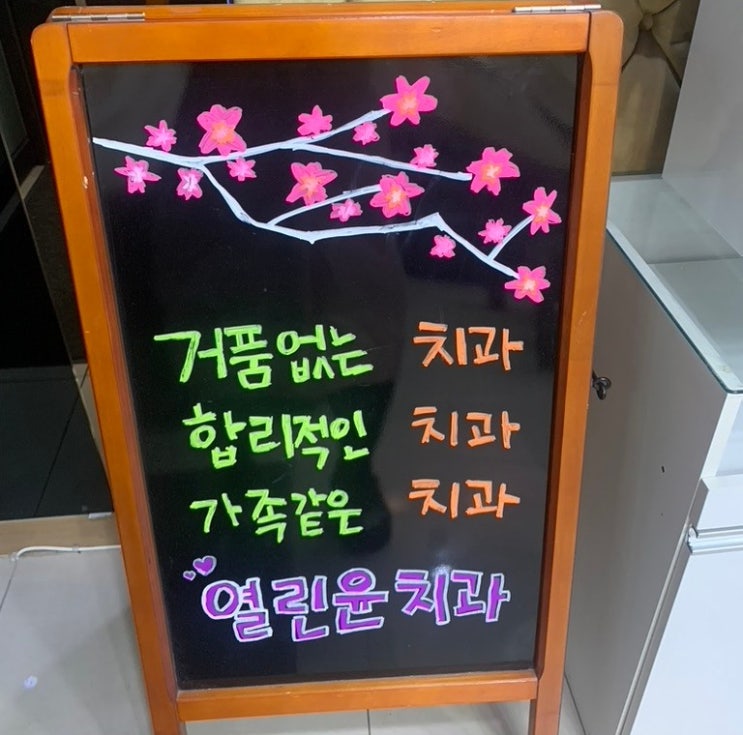 거품없는 치과
합리적인 치과
가족같은 치과
열린윤치과